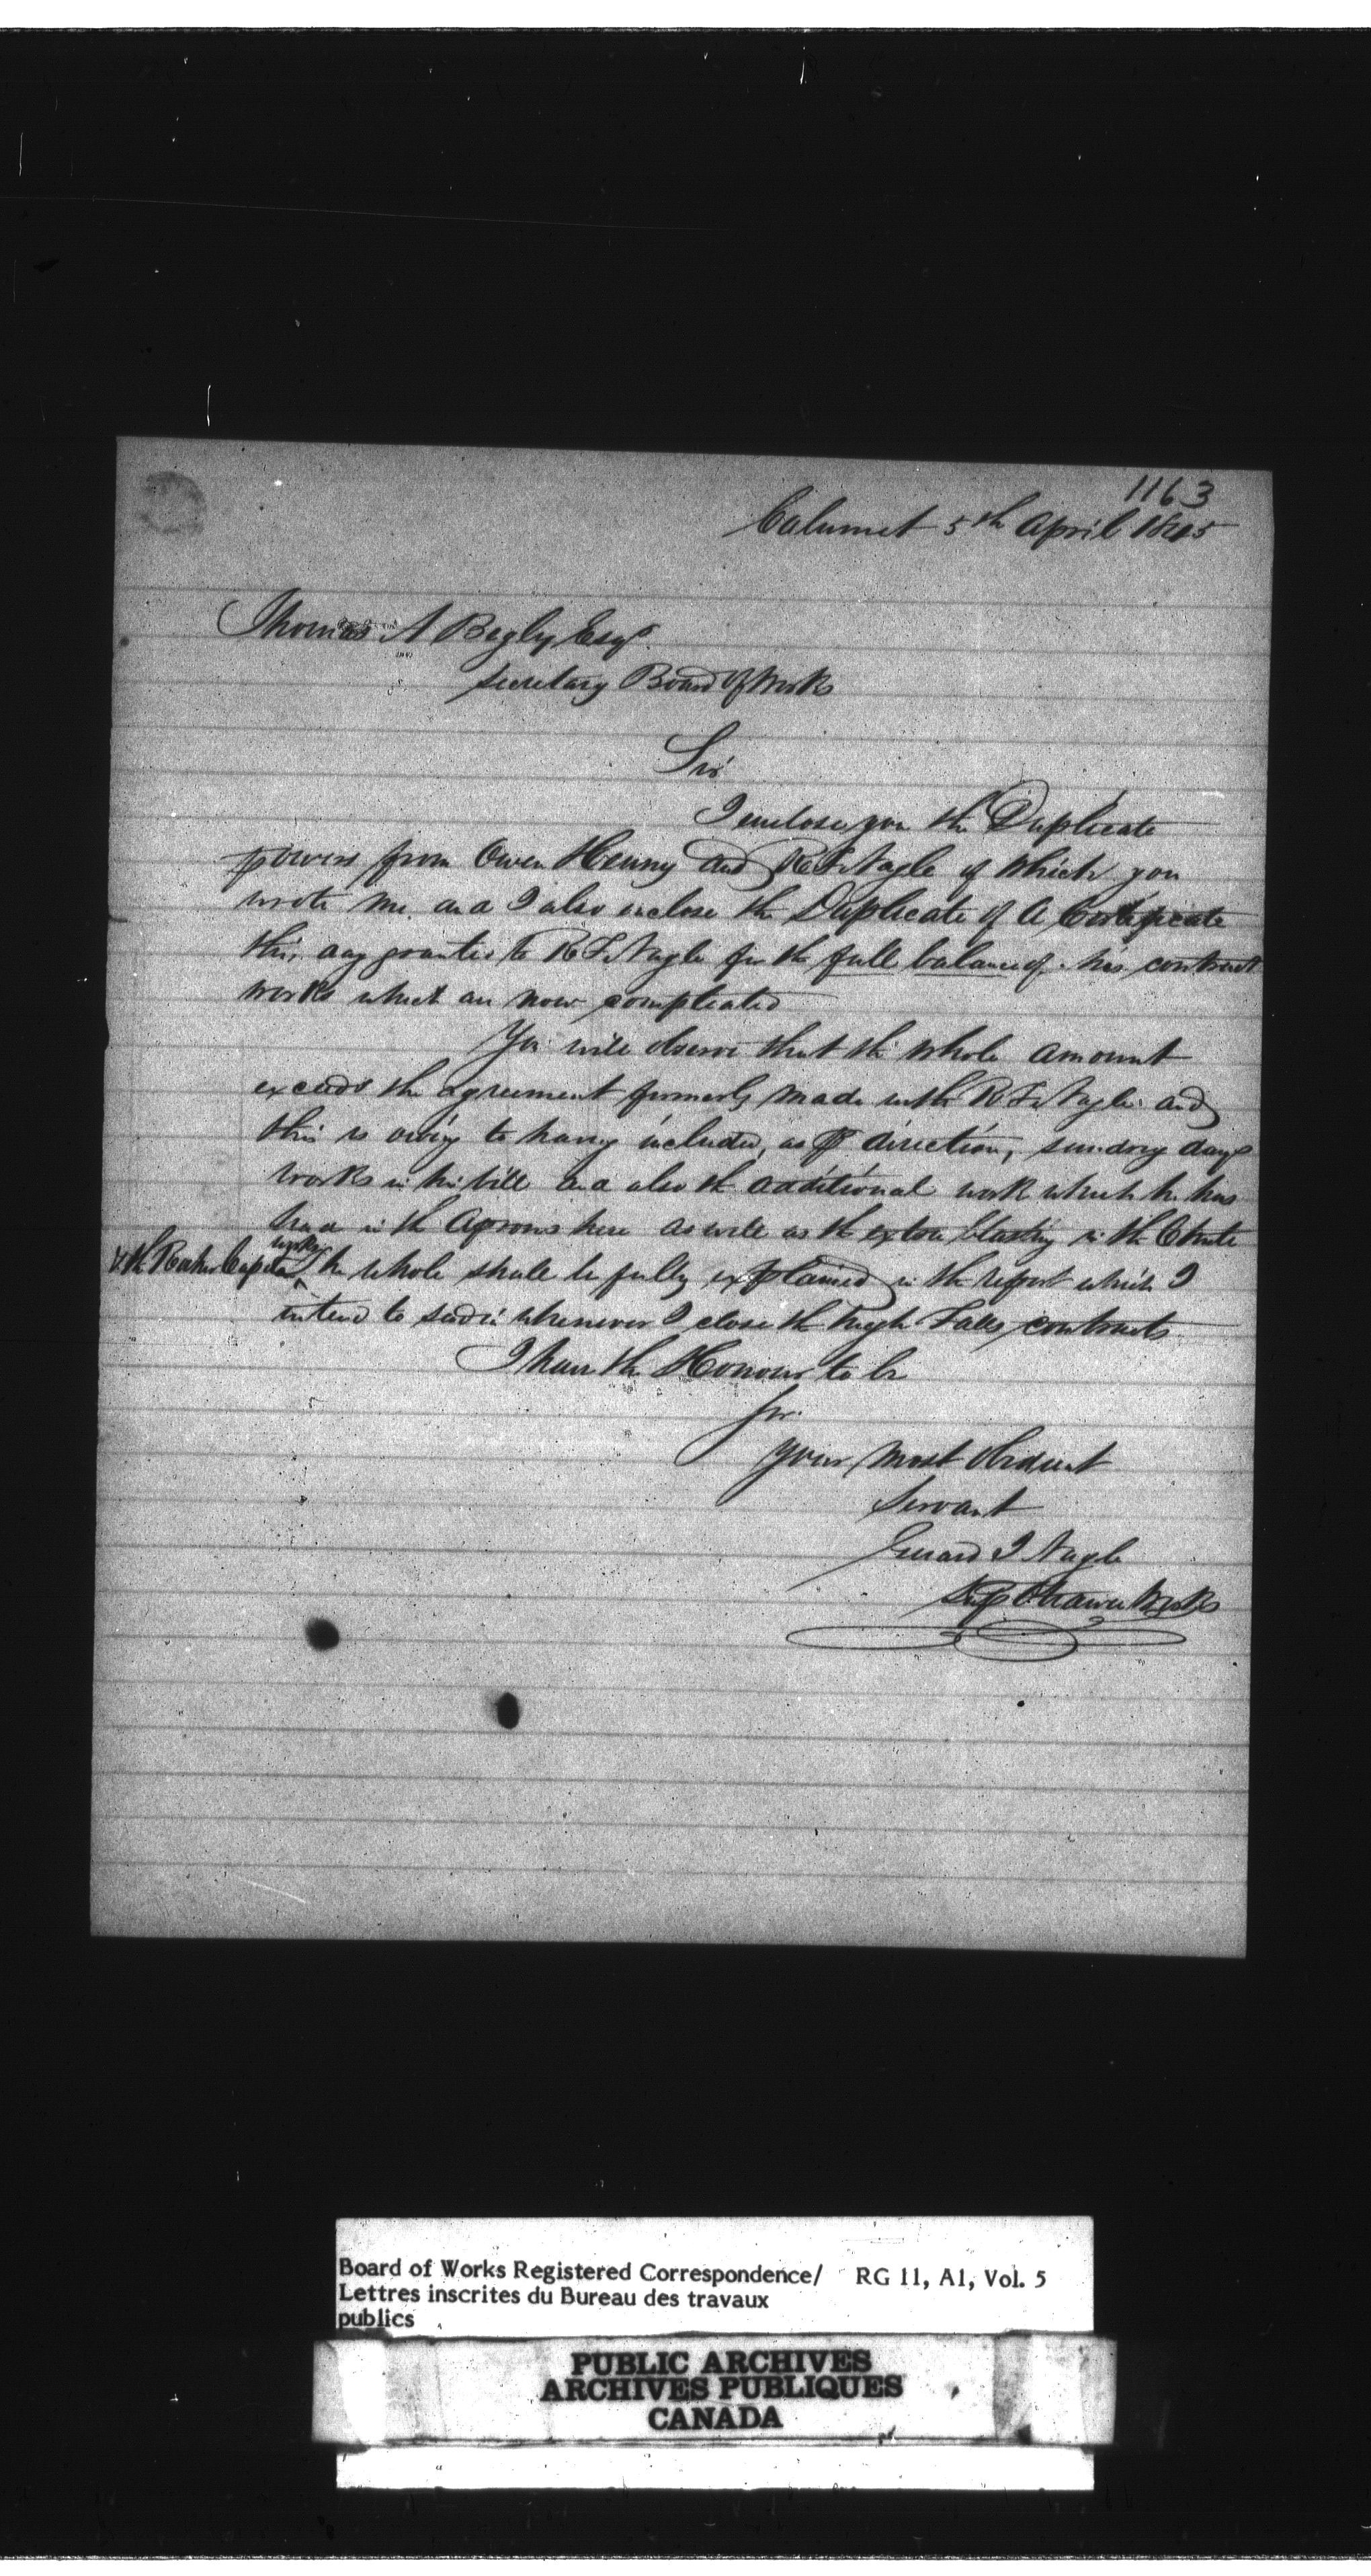 1163
Calumet 5th April 1845
Thomas A Begly Esqr.
Secretary Board of Works
Sir
I enclose you the Duplicate
powers from Owen Henny and R F Nagle of which you
wrote me and I also inclose the Duplicate of a Certificate
this day granted to R F Nagle for the full balance of his contract
works which are now compleated
You will observe that the whole amount
exceeds the agreement formerly made with R F Nagle and
this is owing to having included, as pr direction, sundry days
works in his bill and also the additional work which he has
had in the Aprons here as well as the extra blasting in the Chute
works
& the Rocher The whole shall be fully explained in the report which I
intend to send in whenever I close the high Falls contracts
I have the Honour to be
Sir
your most obedient
Servant
Nagle
Supt Ottawa Works
Board of Works Registered Correspondence/ RG 11, A1, Vol. 5
Lettres inscrites du Bureau des travaux
publics
PUBLIC ARCHIVES
ARCHIVES PUBLIQUES
CANADA